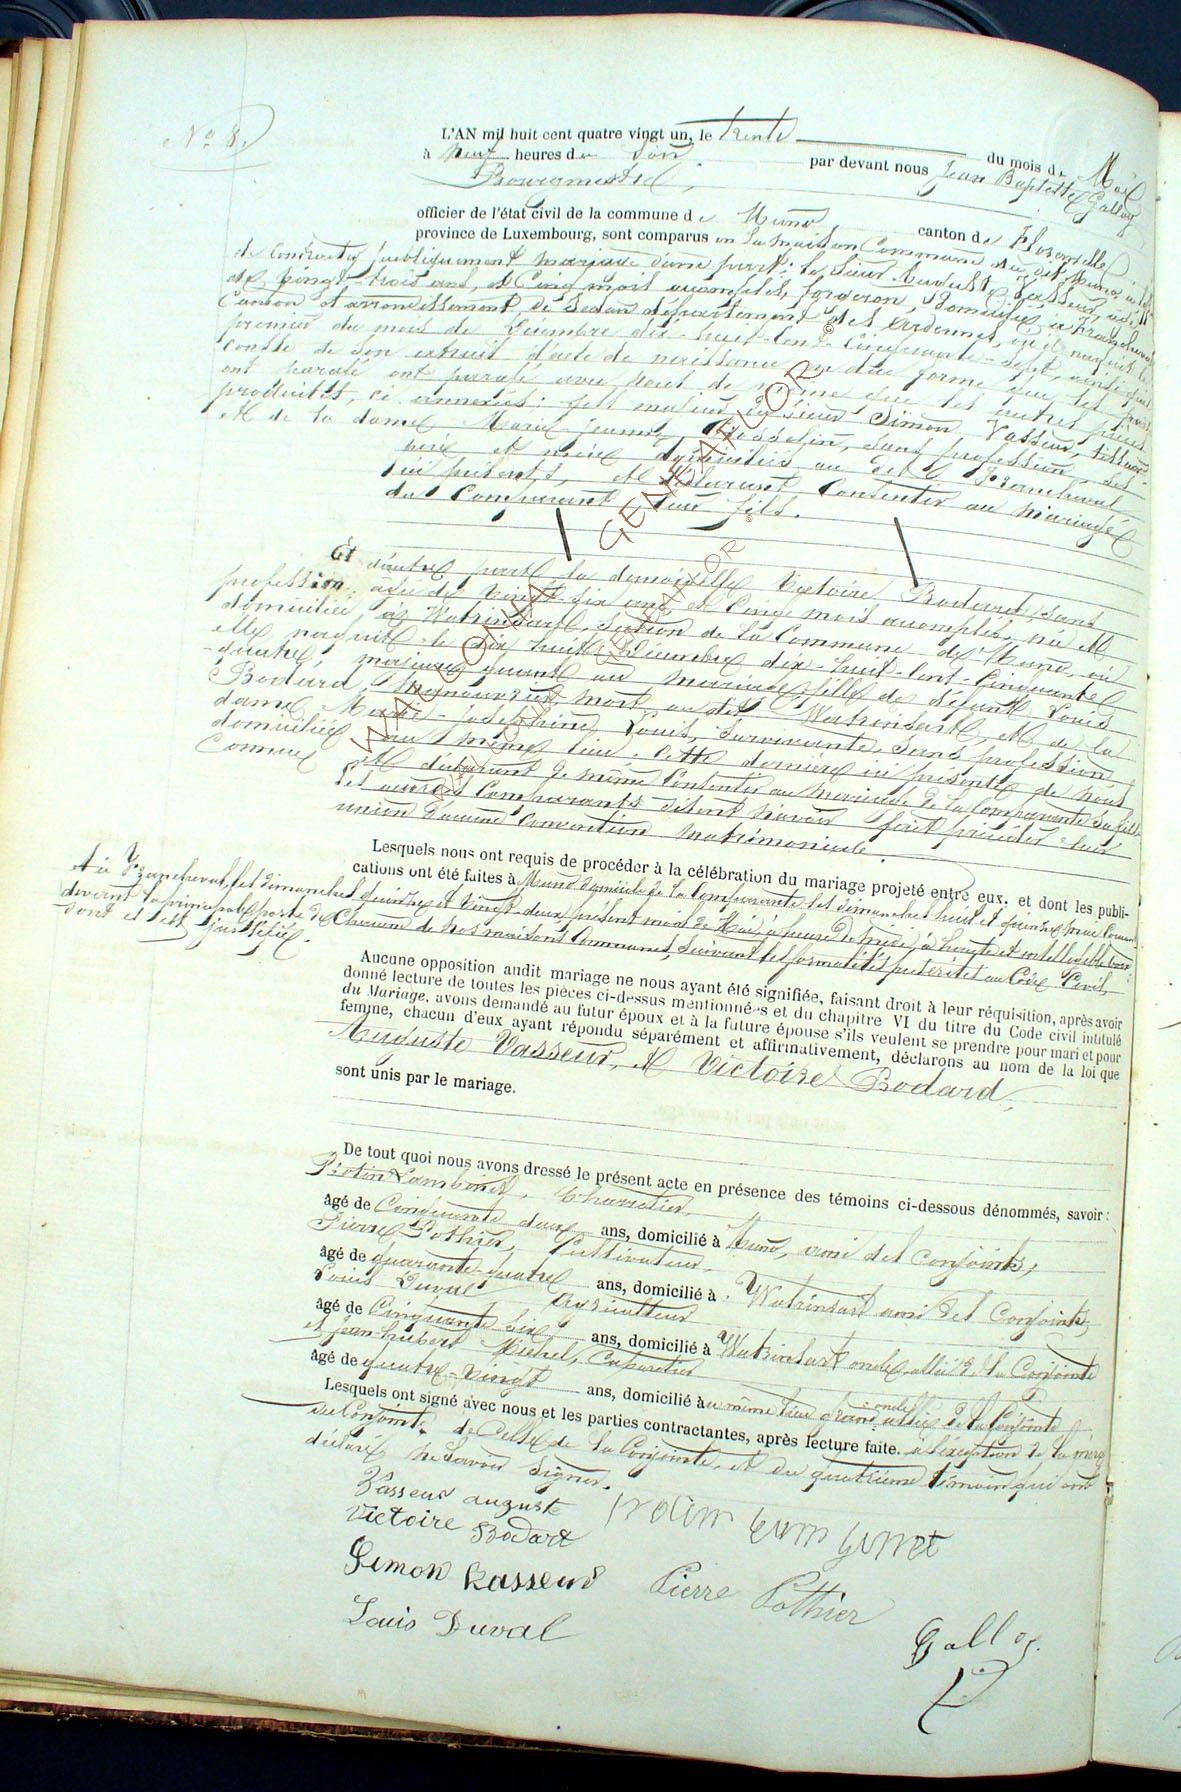 N.o 8.
L'AN mil huit cent quatre vingt un, le trente du mois de Mai
à neuf heures du soir, par devant nous Jean Baptiste Galloy
Bourgmestre,
officier de l'état civil de la commune de Muno canton de Florenville
province de Luxembourg, sont comparus en la maison Commune du dit Muno
de contracter publiquement mariage d'une part: le sieur Auguste Vasseur, âgé
de vingt-trois ans, et Cinq mois accomplis, forgeron, Domicilié à Francheval
Canton et arrondissement de Sedan département des Ardennes, où il naquit le
premier du mois de Décembre dix-huit-Cent-Cinquante-Sept, ainsi qu'il
conste de son extrait d'acte de naissance en due forme que les
ont parafé avec nous de même que les autres pièces
produites, ci annexées: fils majeur du sieur Simon Vasseur, tisseur
et de la dame Marie-Jeanne sans profession ses
père et mère domiciliés au dit Francheval
ici présents, et déclarant Consentir au mariage
du Comparant leur fils.
Et d'autre part la demoiselle Victoire Bodard, sans
profession, âgée de vingt six ans et Cinq mois accomplis, née et
domiciliée à Watrinsart, Section de la Commune de Muno, où
elle naquit le dix huit Décembre dix-huit-Cent-Cinquante
-quatre, majeure quant au mariage, fille de défunt Louis
Bodard, manouvrier, mort au dit Watrinsart, et de la
dame Marie-Joséphine Louis, Survivante, sans profession
domiciliée au même lieu. Cette dernière ici présente de nous
Connue et déclarant de même Consentir au mariage de la Comparante sa fille
Les futurs Comparants disent n'avoir fait précéder leur
union d'aucune Convention matrimoniale.
Lesquels nous ont requis de procéder à la célébration du mariage projeté entre eux, et dont les publi-
cations ont été faites à Muno domicile de la Comparante les dimanches huit et quinze mai Courant
et à Francheval, les dimanches quinze et vingt-deux présent mois de Mai, à heure de midi, à haute et intelligible voix
devant la principale porte de Chacune de nos maisons Communes, suivant les formalités prescrites au Code Civil,
dont il est justifié.
Aucune opposition audit mariage ne nous ayant été signifiée, faisant droit à leur réquisition, après avoir
donné lecture de toutes les pièces ci-dessus mentionnées et du chapitre VI du titre du Code civil intitulé
du Mariage, avons demandé au futur époux et à la future épouse s'ils veulent se prendre pour mari et pour
femme, chacun d'eux ayant répondu séparément et affirmativement, déclarons au nom de la loi que
Auguste Vasseur, et Victoire Bodard,
sont unis par le mariage.
De tout quoi nous avons dressé le présent acte en présence des témoins ci-dessous dénommés, savoir:
Protin Lambinet, Charretier
âgé de Cinquante deux ans, domicilié à Muno, ami des Conjoints,
Pierre Pothier, Cultivateur,
âgé de quarante-quatre ans, domicilié à Watrinsart ami des Conjoints,
Louis Duval Agriculteur
âgé de Cinquante six ans, domicilié à Watrinsart oncle allié de la Conjointe
et Jean-hubert Michel, Cabaretier
âgé de quatre-vingt ans, domicilié au même lieu grand oncle allié de la Conjointe
Lesquels ont signé avec nous et les parties contractantes, après lecture faite. à l'exception de la mère
du Conjoint, de Celle de la Conjointe, et du quatrième témoin qui ont
déclaré ne savoir signer.
Vasseur auguste
Victoire Bodart
Simon Vasseur
Pierre Pothier
Louis Duval
Galloy
WALLONIA GENEAFLOR ©
GENEAFLOR ©